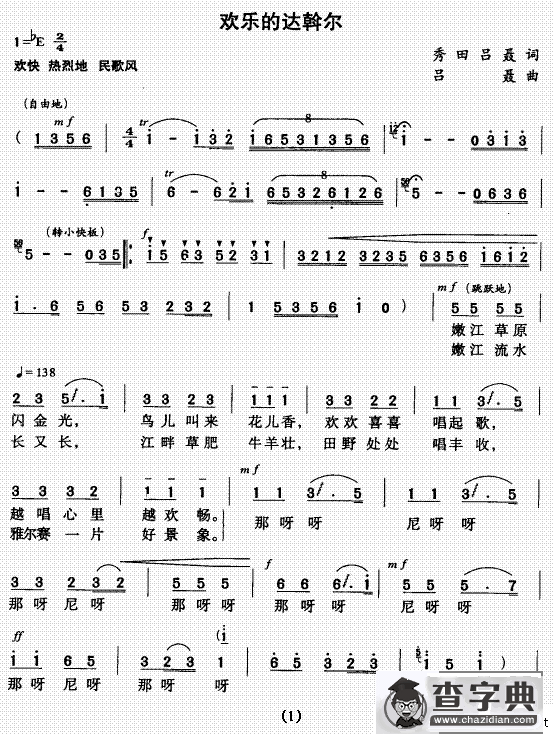 欢乐的达斡尔
1=♭E 2/4
秀田吕聂词
欢快 热烈地 民歌风
吕聂曲
(自由地)
mf tr 8
( 1 3 5 6 4/4 i - i 3 2 1 6 5 3 1 3 5 6 i - - 0 3 1 3
tr 8
i - - 6 1 3 5 6 - 6 2 1 6 5 3 2 6 1 2 6 5 - - 0 6 3 6
(转小快板) f
5 - - 0 3 5 i 5 6 3 5 2 3 2 3 2 1 2 3 2 3 5 6 3 5 6 i 6 i 2
mf (跳跃地)
i . 6 5 6 5 3 2 3 2 1 5 3 5 6 i 0 ) 5 5 5 5
嫩江 草原
嫩江 流水
♩=138
2 3 5 . i 3 3 2 3 i i i 3 3 2 2 1 3 . 5
闪金光, 鸟儿叫来 花儿香, 欢欢喜喜 唱起歌,
长又长, 江畔草肥 牛羊壮, 田野处处 唱丰收,
mf
3 3 3 2 i i i 1 1 3 . 5 4 4 3 . 5
越唱心里 越欢畅。 那呀呀 尼呀呀
雅尔赛一片 好景象。
f mf
3 3 2 3 2 5 5 5 6 6 6 . i 5 5 5 . 7
那呀尼呀 那呀呀 那呀呀 尼呀呀
ff (i
i i 6 5 3 2 3 1 5 . 6 5 3 2 3 2 1 5 i i )
那呀尼呀 那呀 呀
(1)
查字典
www.chazidian.com
t